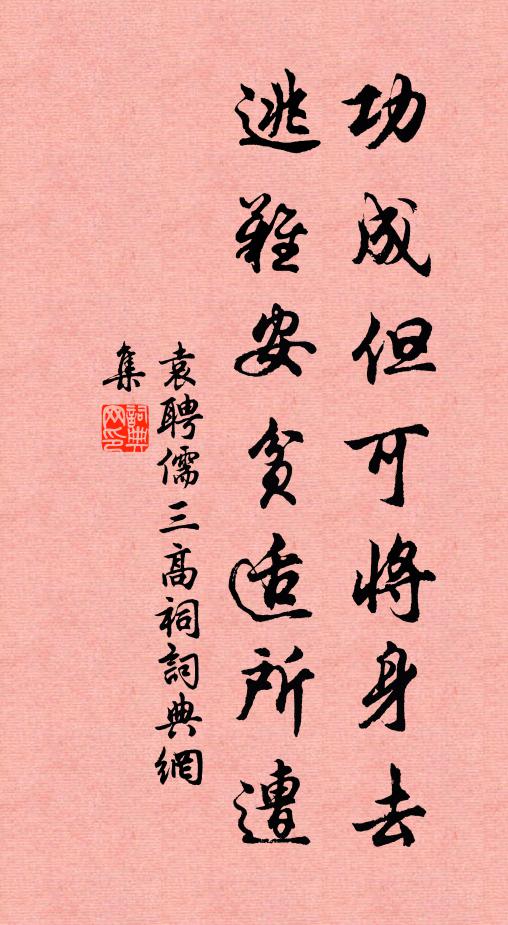 功成但可將身去
逃難安貧适所遭
袁聘儒三高祠詞典網
集
詞典
网印